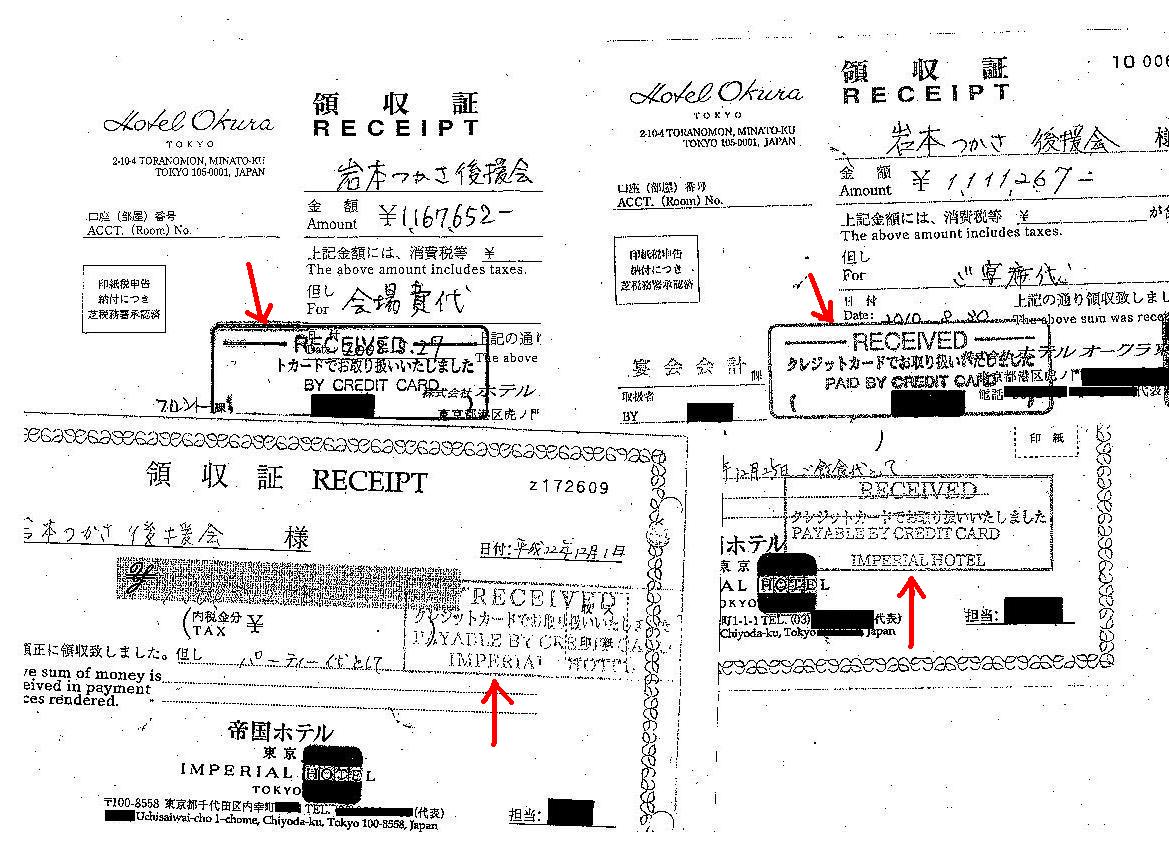 領収証
RECEIPT
Hotel Okura
TOKYO
2-10-4 TORANOMON, MINATO-KU
TOKYO 105-0001, JAPAN
岩本つかさ後援会
金額
Amount
¥1,167,652-
口座(部屋)番号
ACCT. (Room) No.
上記金額には、消費税等 ¥
The above amount includes taxes.
印紙税申告
納付につき
芝税務署承認済
但し
For
会場費代
RECEIVED
日付
Date:
2008.3.27
上記の通り
The above
トカードでお取り扱いいたしました
BY CREDIT CARD
株式会社ホテル
フロント課
東京都港区虎ノ門
領収証
RECEIPT
10 006
Hotel Okura
TOKYO
2-10-4 TORANOMON, MINATO-KU
TOKYO 105-0001, JAPAN
岩本つかさ 後援会 様
金額
Amount
¥1,111,267-
口座(部屋)番号
ACCT. (Room) No.
上記金額には、消費税等 ¥
が含
The above amount includes taxes.
印紙税申告
納付につき
芝税務署承認済
但し
For
ご宴席代
日付
Date:
上記の通り領収致しまし
The above sum was rece
RECEIVED
クレジットカードでお取り扱いいたしました
PAID BY CREDIT CARD
宴会会計課
ホテルオークラ東
東京都港区虎ノ門
電話
代表)
取扱者
BY
領収証 RECEIPT
z172609
岩本つかさ後援会 様
日付:平成22年12月1日
(内税金分
TAX
¥
RECEIVED
クレジットカードでお取り扱いいたしました
PAYABLE BY CREDIT CARD
IMPERIAL HOTEL
真正に領収致しました。但し パーティー代として
ve sum of money is
eived in payment
ces rendered.
帝国ホテル
東京
IMPERIAL HOTEL
TOKYO
〒100-8558 東京都千代田区内幸町 TEL. (代表)
Uchisaiwai-cho 1-chome, Chiyoda-ku, Tokyo 100-8558, Japan
担当:
印紙
年12月25日 ご飲食代として
RECEIVED
クレジットカードでお取り扱いいたしました
PAYABLE BY CREDIT CARD
IMPERIAL HOTEL
ホテル
東京
AL HOTEL
OKYO
町1-1-1 TEL. (03) (代表)
Chiyoda-ku, Tokyo Japan
担当: